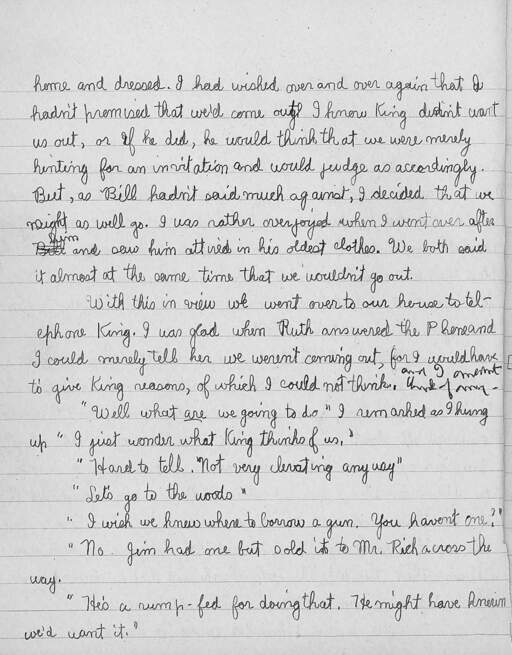 home and dressed. I had wished over and over again that I
hadn't promised that we'd come out! I know King didn't want
us out, or if he did, he would think that we were merely
hinting for an invitation and would judge as accordingly.
But, as Bill hadn't said much against, I decided that we
might as well go. I was rather overjoyed when I went over after
him and saw him attired in his oldest clothes. We both said
it almost at the same time that we wouldn't go out.
With this in view we went over to our house to tel-
ephone King. I was glad when Ruth answered the Phone and
I could merely tell her we weren't coming out, for I would have
to give King reasons, of which I could not think.
and I
think of any-
"Well what are we going to do" I remarked as I hung
up "I just wonder what King thinks of us."
"Hard to tell. Not very elevating anyway"
"Let's go to the woods"
"I wish we knew where to borrow a gun. You havent one?"
"No. Jim had one but sold it to Mr. Rich across the
way.
"He's a rump-fed for doing that. He might have known
we'd want it."